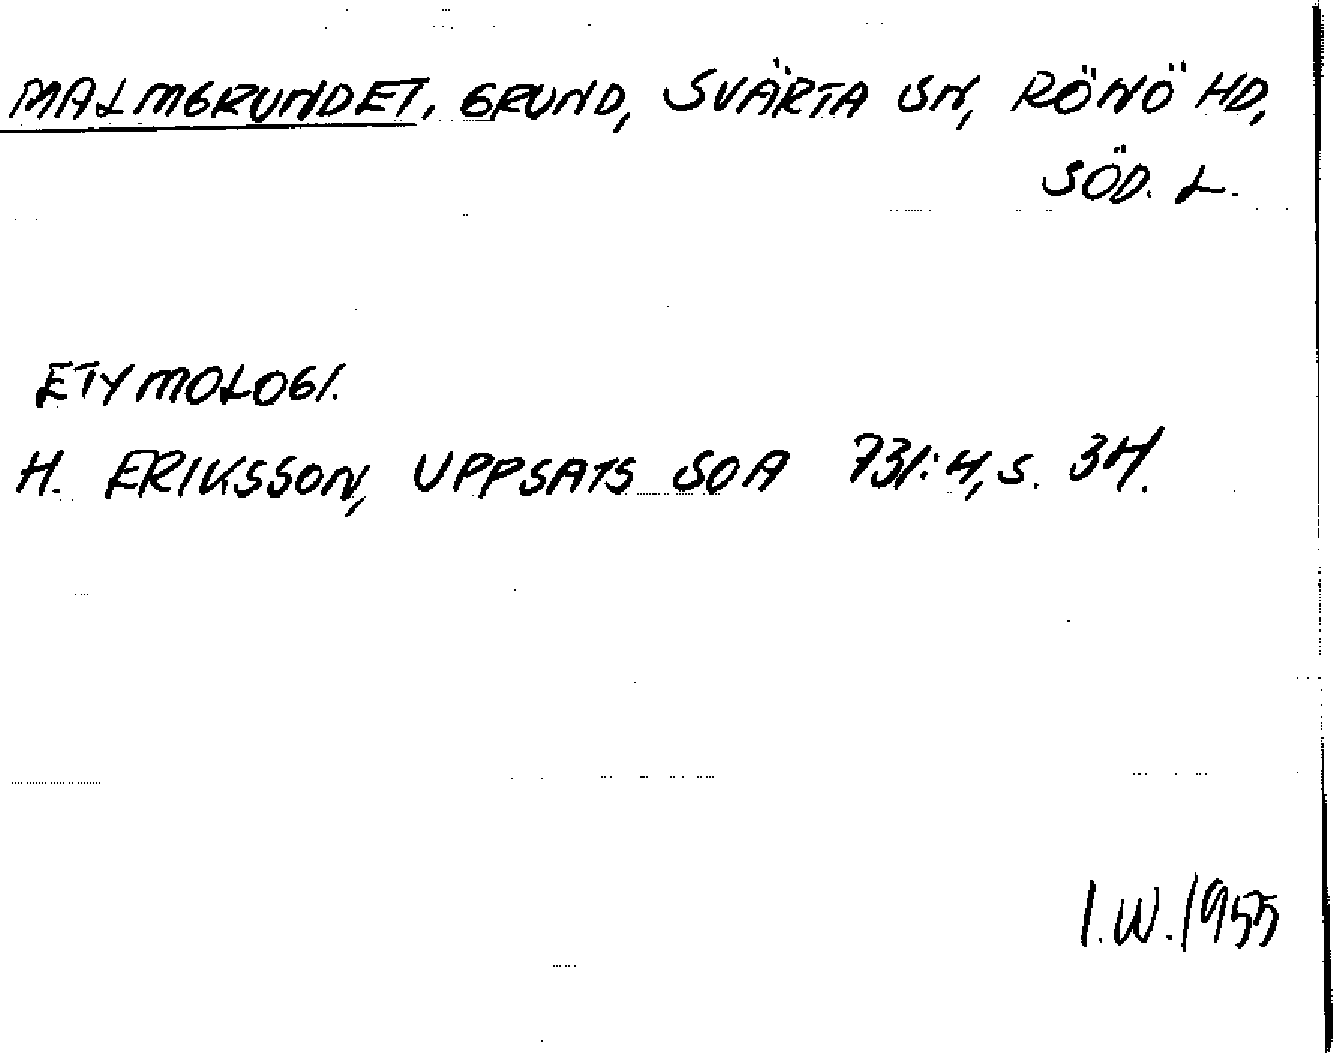 MALMGRUNDET, GRUND, SVÄRTA SN, RÖNÖ HD,
SÖD. L.
ETYMOLOGI.
H. ERIKSSON, UPPSATS SOA 731:4, S. 34.
I.W. 1955